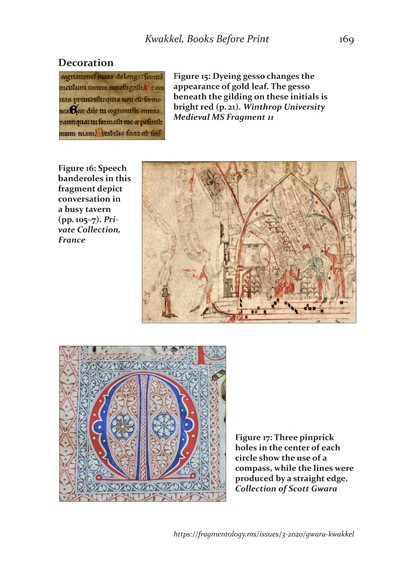 Kwakkel, Books Before Print
169
Decoration
Figure 15: Dyeing gesso changes the
appearance of gold leaf. The gesso
beneath the gilding on these initials is
bright red (p. 21). Winthrop University
Medieval MS Fragment 11
Figure 16: Speech
banderoles in this
fragment depict
conversation in
a busy tavern
(pp. 105–7). Pri-
vate Collection,
France
Figure 17: Three pinprick
holes in the center of each
circle show the use of a
compass, while the lines were
produced by a straight edge.
Collection of Scott Gwara
https://fragmentology.ms/issues/3-2020/gwara-kwakkel